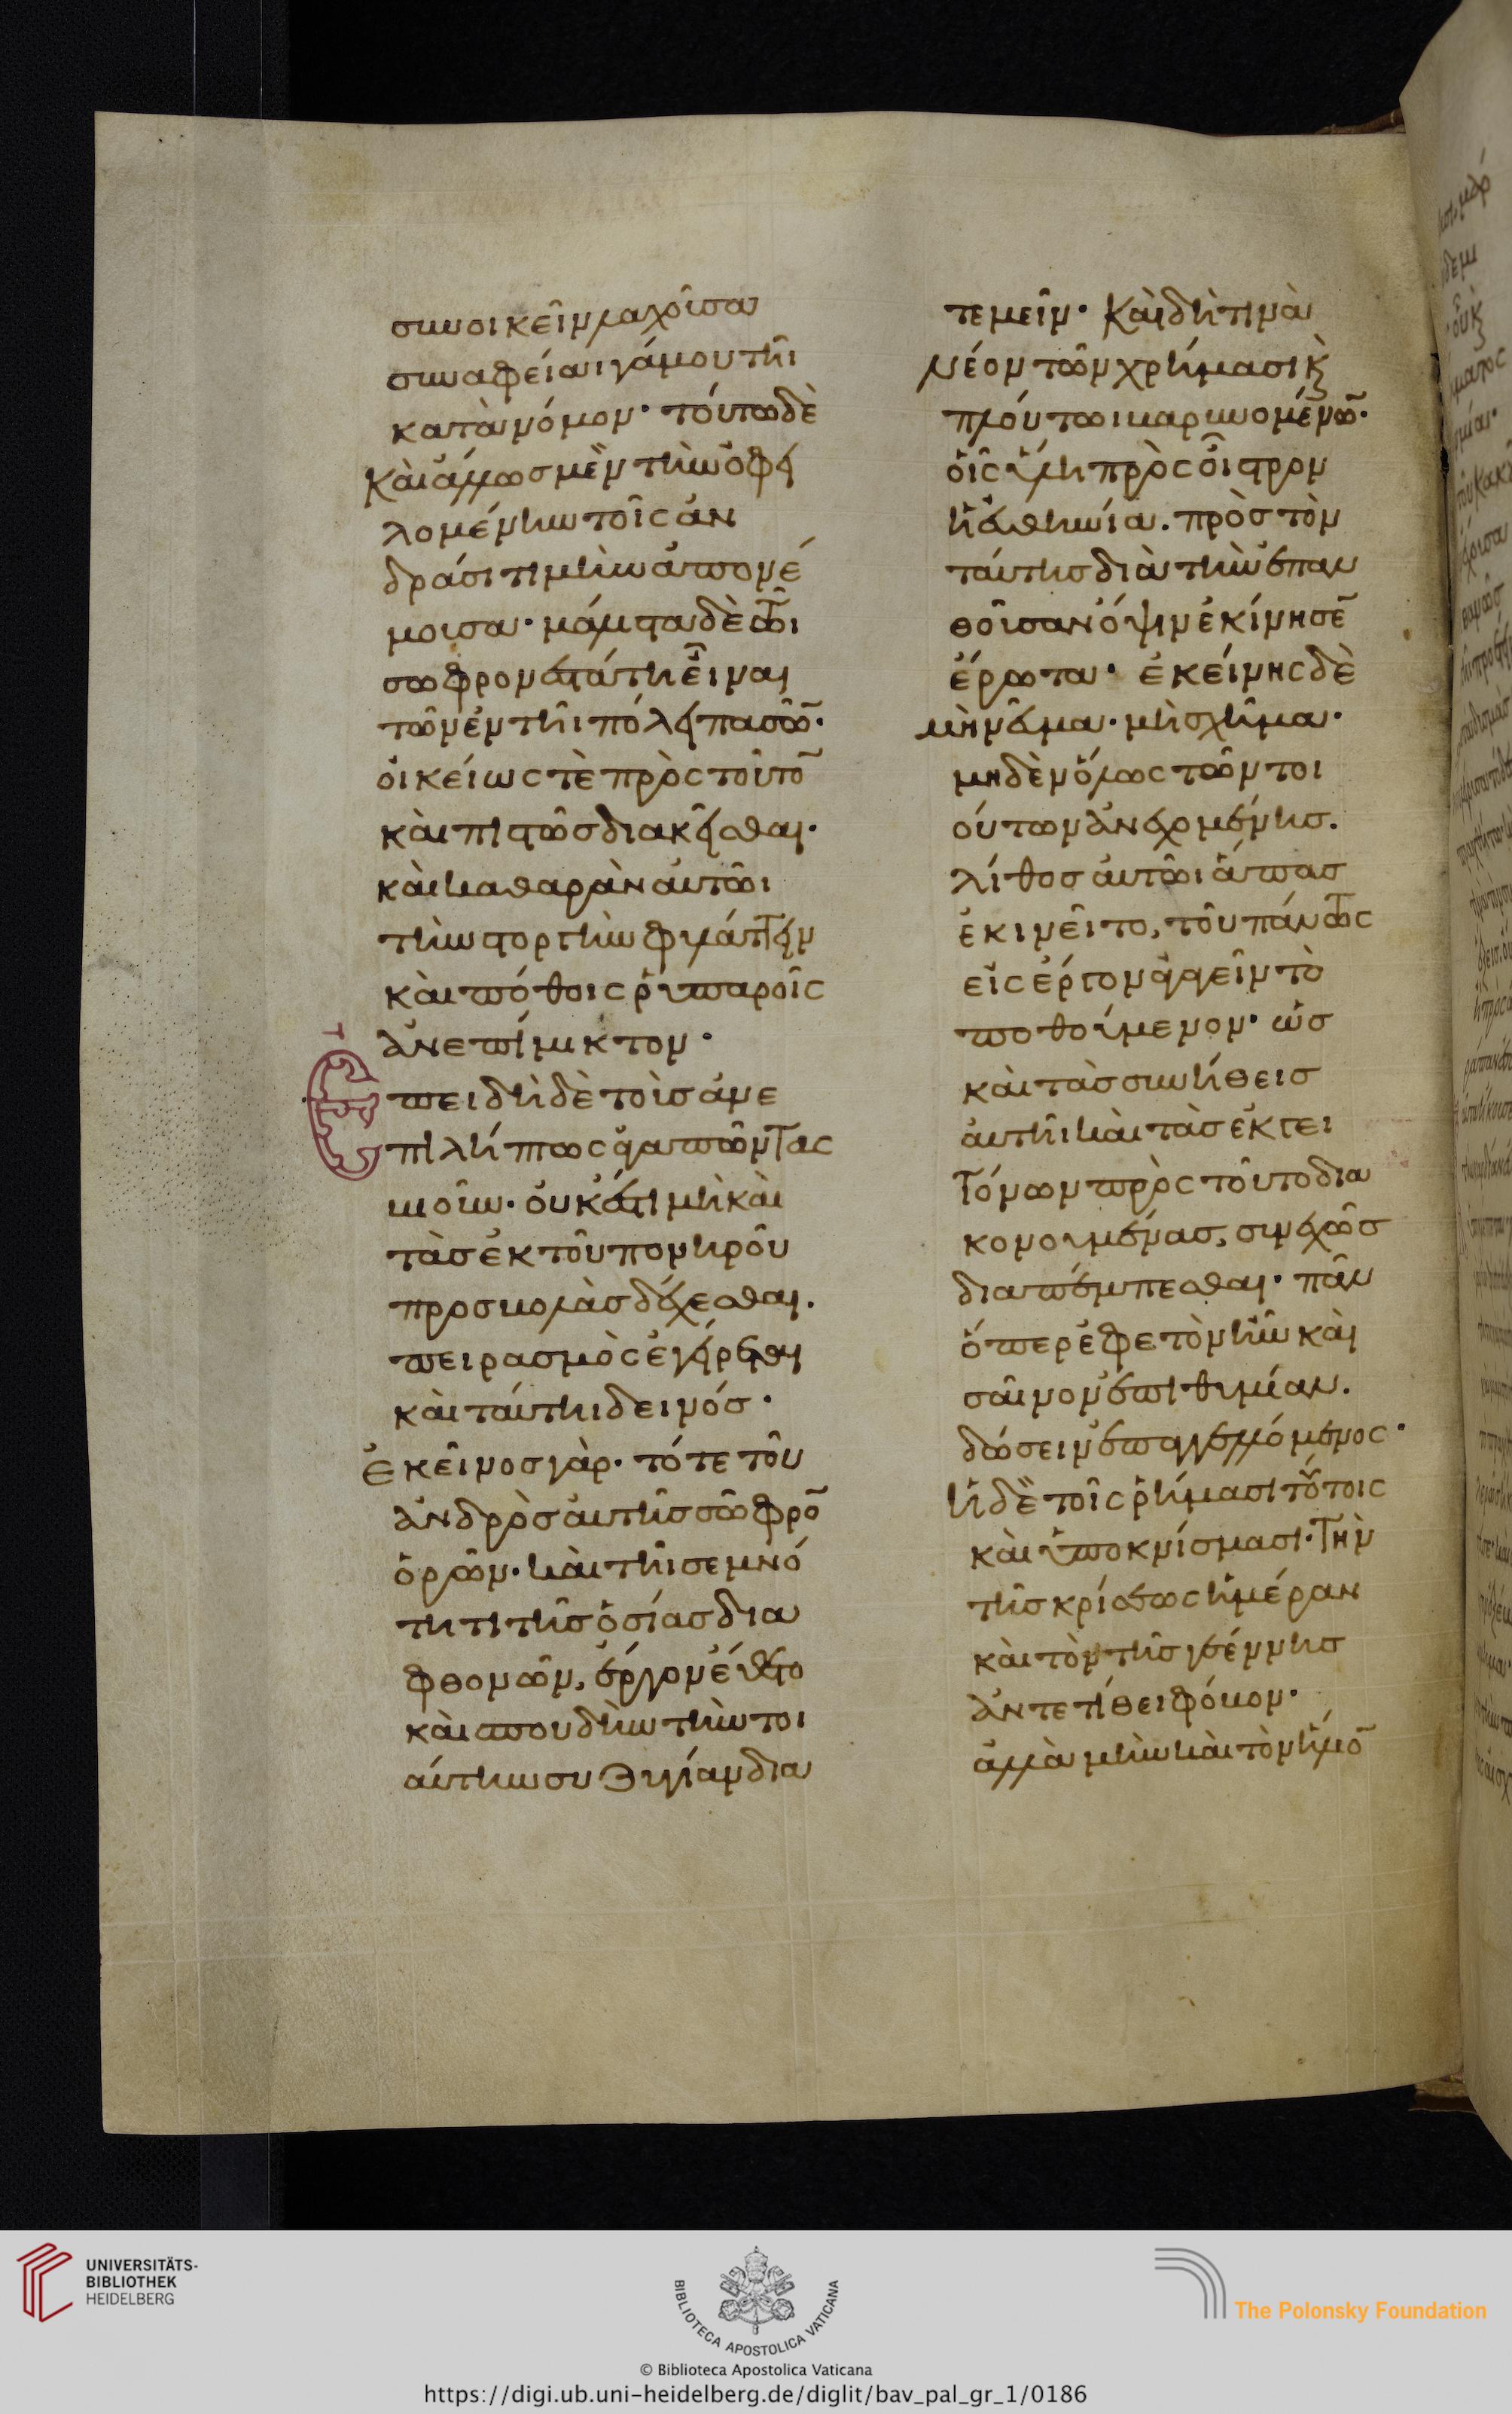 συνοικεῖν λαχοῦσα
συναφείαι γάμου τῆι
κατὰ νόμον· τούτω δὲ
καὶ ἄλλως μὲν τὴν ὀφει
λομένην τοῖς ἀν
δράσι τιμὴν ἀπονέ
μουσα· μάλιστα δὲ τῶι
σωφρονεστάτη εἶναι
τῶν ἐν τῆι πόλει πασῶ̅·
οἰκείως τὲ πρὸς τοῦτο̅
καὶ πιστῶς διακεῖσθαι·
καὶ καθαρὰν αὐτῶι
τὴν στοργὴν φυλάττειν
καὶ πόθοις ῥυπαροῖς
ἀνεπίμικτον·
Ἐπειδὴ δὲ τοὺς ἀνε
πιλήπτως ἀγαπῶντας
βιοῦν· οὐκ ἔστι μὴ καὶ
τὰς ἐκ τοῦ πονηροῦ
προσβολὰς δέχεσθαι.
πειρασμὸς ἐγείρεται
καὶ ταύτηι δεινός·
Ἐκεῖνος γὰρ· τότε τοῦ
ἀνδρὸς αὐτῆς σῶφρο̅
ὁρῶν· καὶ τῆι σεμνό
τητι τῆς ὁσίας δια
φθονῶν, ἔργον ἔθετο
καὶ σπουδὴν τὴν τοι
αύτην συζυγίαν δια
τεμεῖν· Καὶ δή τινα
νέον τῶν χρήμασι κ̀
πλούτωι βαρυνομένω̅·
οἷς ὕλη πρὸς οἶστρον
ἡ εὐθηνία. πρὸς τὸν
ταύτης διὰ τὴν ἐπαν
θοῦσαν ὄψιν ἐκίνησε̅
ἔρωτα· ἐκείνης δὲ
μὴ νεῦμα· μὴ σχῆμα·
μηδὲν ὅλως τῶν τοι
ούτων ἀνεχομένης.
λίθος αὐτῶι ἅπας
ἐκινεῖτο, τοῦ πάντως
εἰς ἔργον ἀγαγεῖν τὸ
ποθούμενον· ὡς
καὶ τὰς συνήθεις
αὐτῆι καὶ τὰς ἐκ γει
τόνων πρὸς τοῦτο δια
κονουμένας, συνεχῶς
διαπέμπεσθαι· πᾶν
ὅπερ ἐφετὸν ἦν καὶ
σαῖνον ἐπιθυμίαν.
δώσειν ἐπαγγελλόμενος·
ἡ δὲ τοῖς ῥήμασι τούτοις
καὶ ὑποκνίσμασι· τὴν
τῆς κρίσεως ἡμέραν
καὶ τὸν τῆς γεέννης
ἀντετίθει φόβον·
ἀλλὰ μὴν καὶ τὸν ἥλιο̅
UNIVERSITÄTS-
BIBLIOTHEK
HEIDELBERG
BIBLIOTECA APOSTOLICA VATICANA
The Polonsky Foundation
© Biblioteca Apostolica Vaticana
https://digi.ub.uni-heidelberg.de/diglit/bav_pal_gr_1/0186